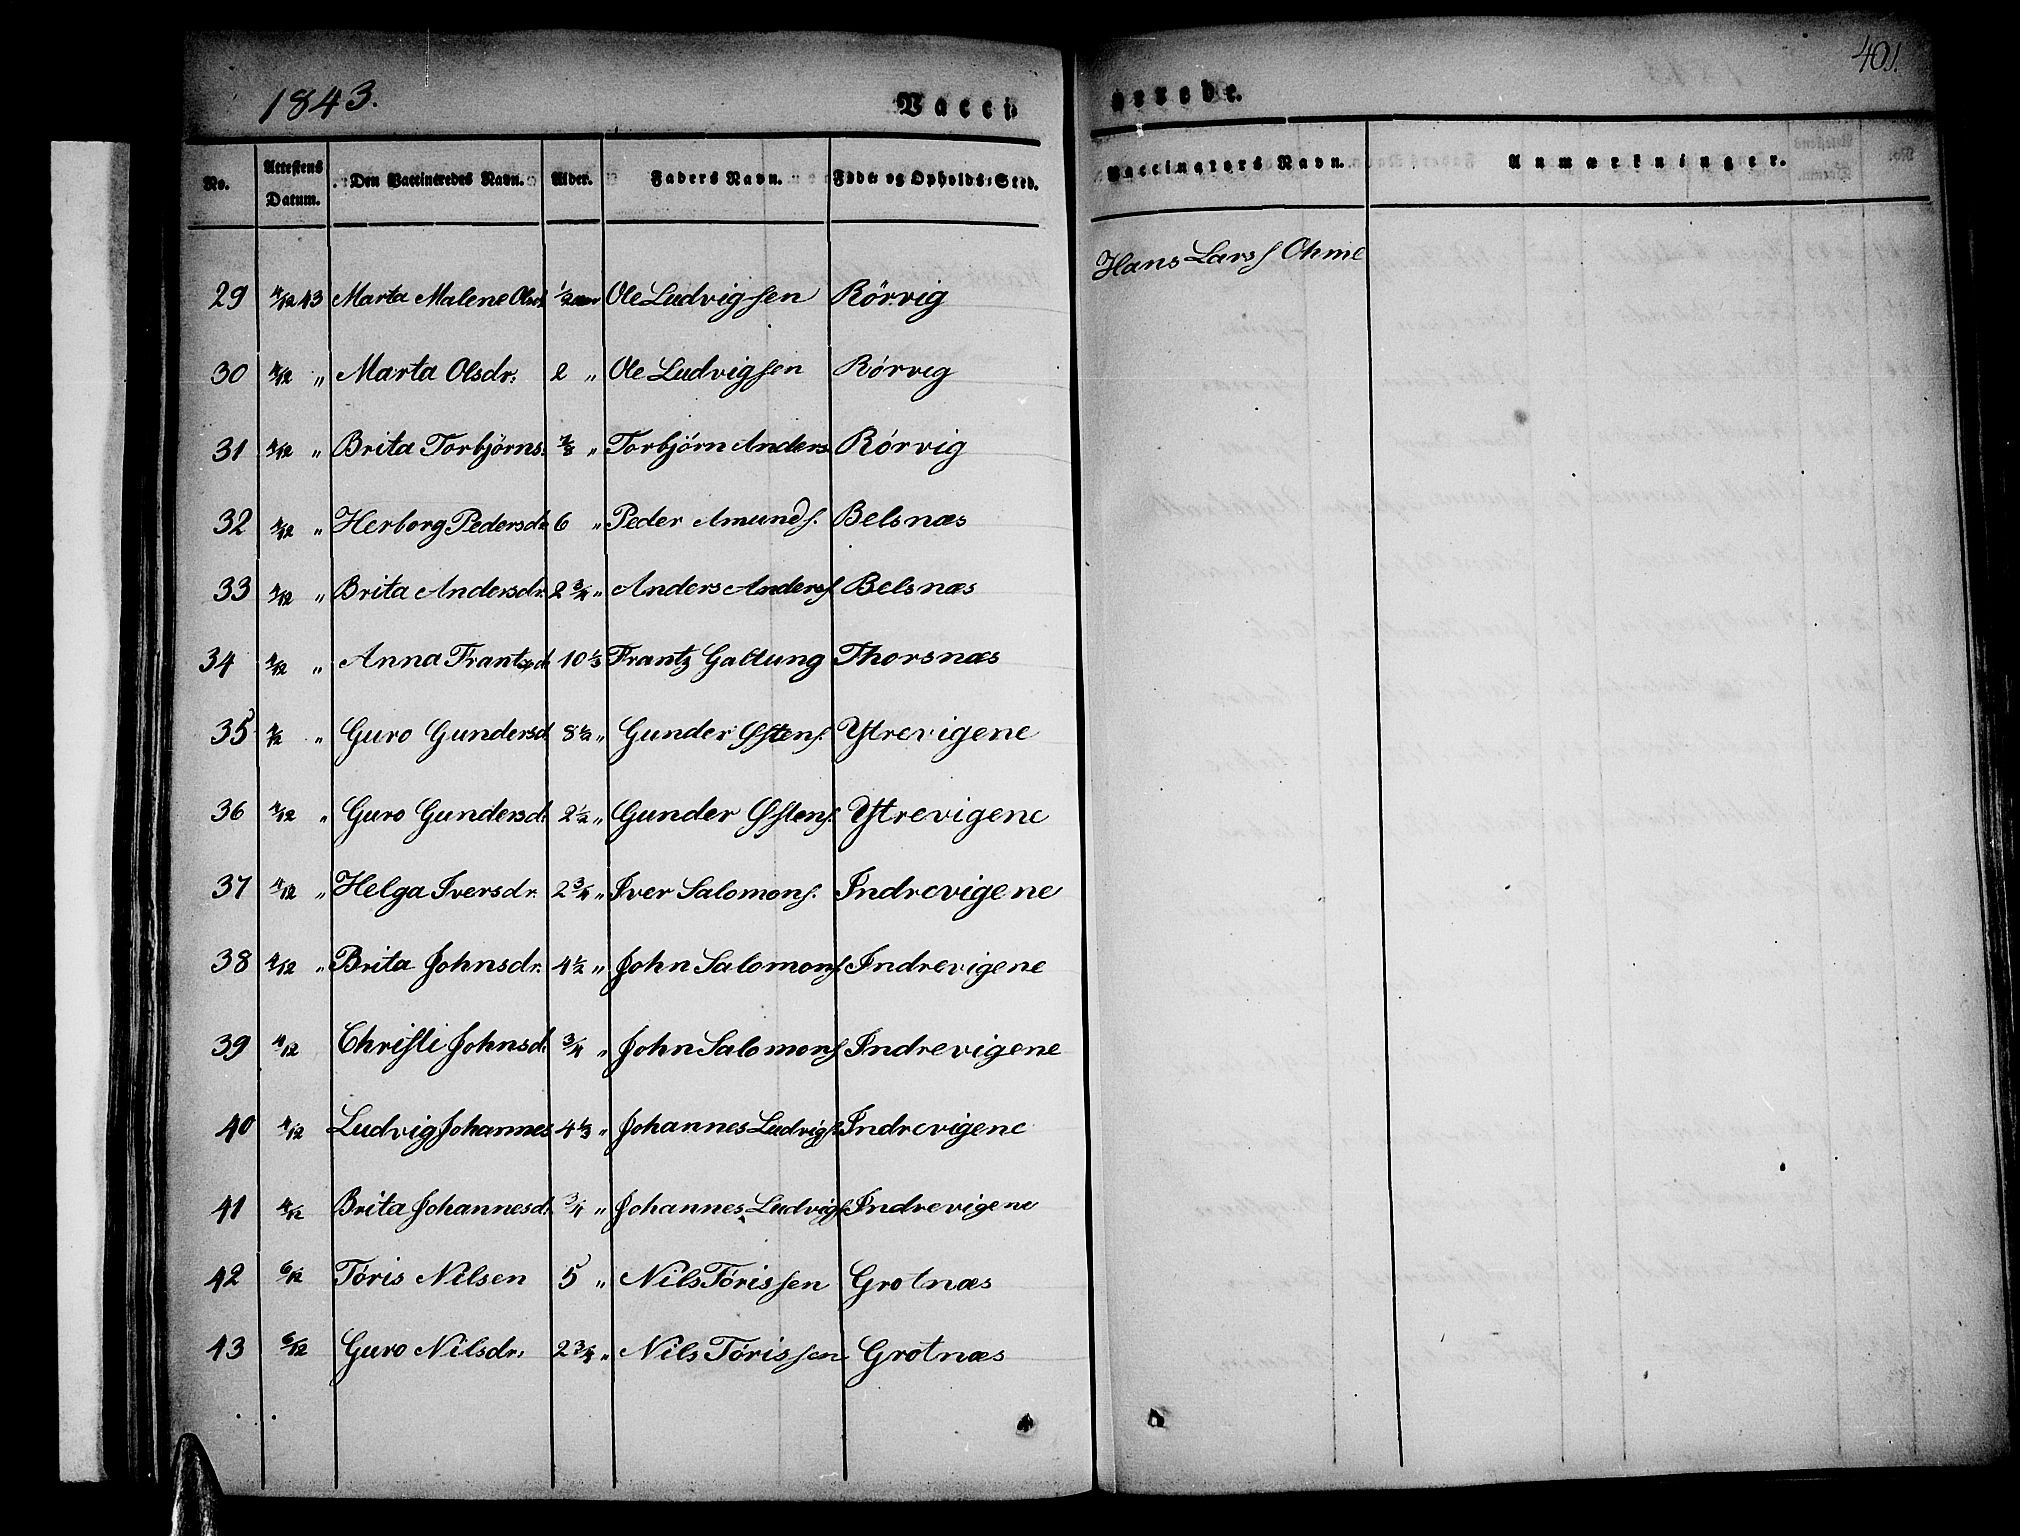 1843. Vacci-
No. Attestens Datum. Den Vaccineredes Navn. Alder. Faders Navn. Føde- og Opholds-Sted.
29 4/12 43 Marta Malene Olsd. 1/2 Ole Ludvigsen Rörvig
30 4/12 " Marta Olsdr. 2 " Ole Ludvigsen Rörvig
31 4/12 " Brita Torbjörns. " Torbjörn Anders Rörvig
32 4/12 " Herborg Pedersd. 6 " Peder Amunds. Belsnæs
33 4/12 " Brita Andersdr. 2 3/4 " Anders Anders. Belsnæs
34 4/12 " Anna Frantzd. 10 1/3 Frantz Galtung Thorsnæs
35 4/12 " Guro Gundersd. 8 1/2 " Gunder Østens. Ytrevigene
36 4/12 " Guro Gundersd. 2 1/2 " Gunder Østens. Ytrevigene
37 4/12 " Helga Iversdr. 2 3/4 " Iver Salomons. Indrevigene
38 4/12 " Brita Johnsdr. 4 1/2 " John Salomons. Indrevigene
39 4/12 Christi Johnsd. 3/4 " John Salomons. Indrevigene
40 4/12 Ludvig Johannes 4 1/3 " Johannes Ludvigs. Indrevigene
41 4/12 Brita Johannesd. 3/4 " Johannes Ludvigs. Indrevigene
42 6/12 Töris Nilsen 5 " Nils Törissen Grotnæs
43 6/12 Guro Nilsdr. 2 3/4 " Nils Törissen Grotnæs
401.
nerede.
Vaccinators Navn. Anmærkninger.
Hans Larss Ohme